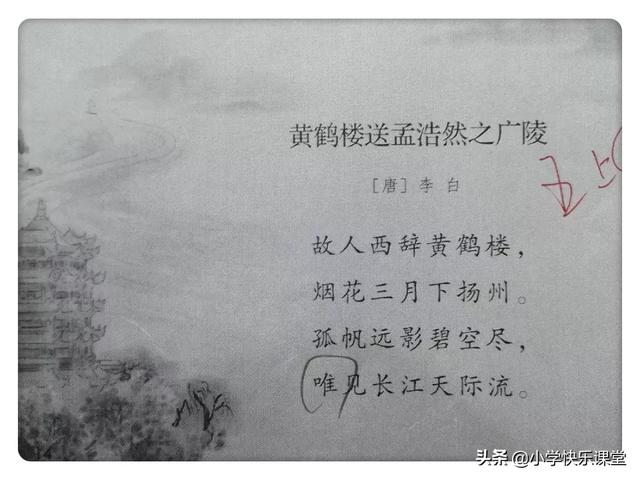 黄鹤楼送孟浩然之广陵
五上
[唐] 李白
故人西辞黄鹤楼，
烟花三月下扬州。
孤帆远影碧空尽，
唯见长江天际流。
头条 @小学快乐课堂